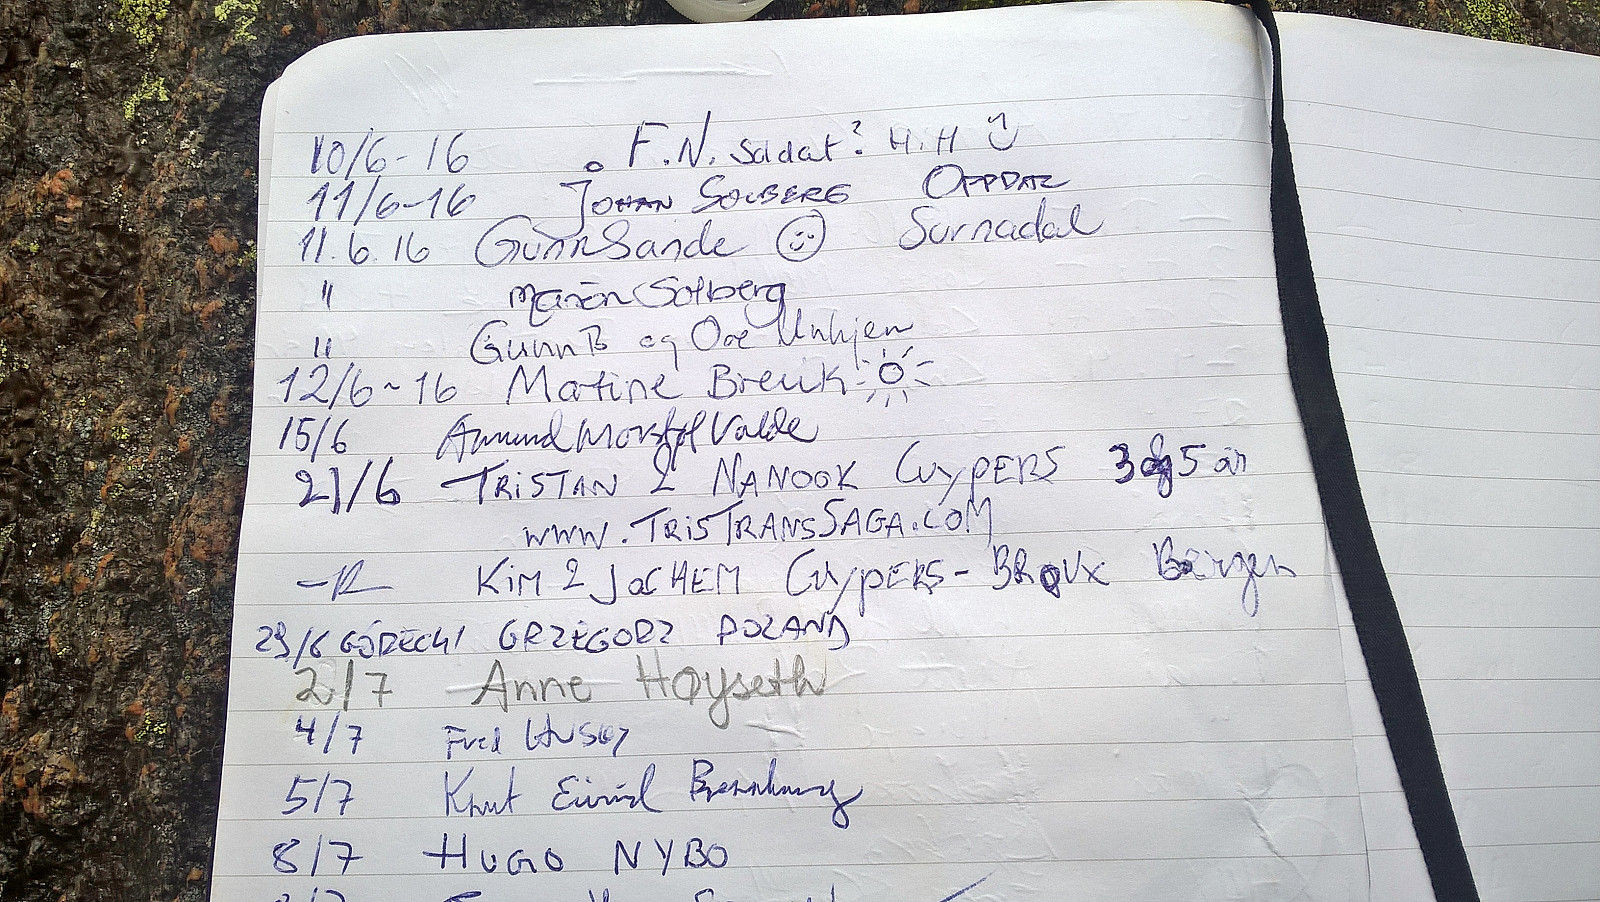 10/6-16 F.N. soldat? H.H
11/6-16 JOHAN SOLBERG OPPDAL
11.6.16 Gunn Sande Surnadal
" Maren Solberg
" Gunn B og Ove
12/6-16 Martine Brevik
15/6 Amund Valde
21/6 TRISTAN & NANOOK CUYPERS 3 og 5 år
www.TRISTRANSSAGA.COM
-"- KIM & JOCHEM CUYPERS-BROUX Bergen
29/6 GÓRECKI GRZEGORZ POLAND
2/7 Anne Høyseth
4/7 Fred Husby
5/7 Knut Eivind
8/7 HUGO NYBO